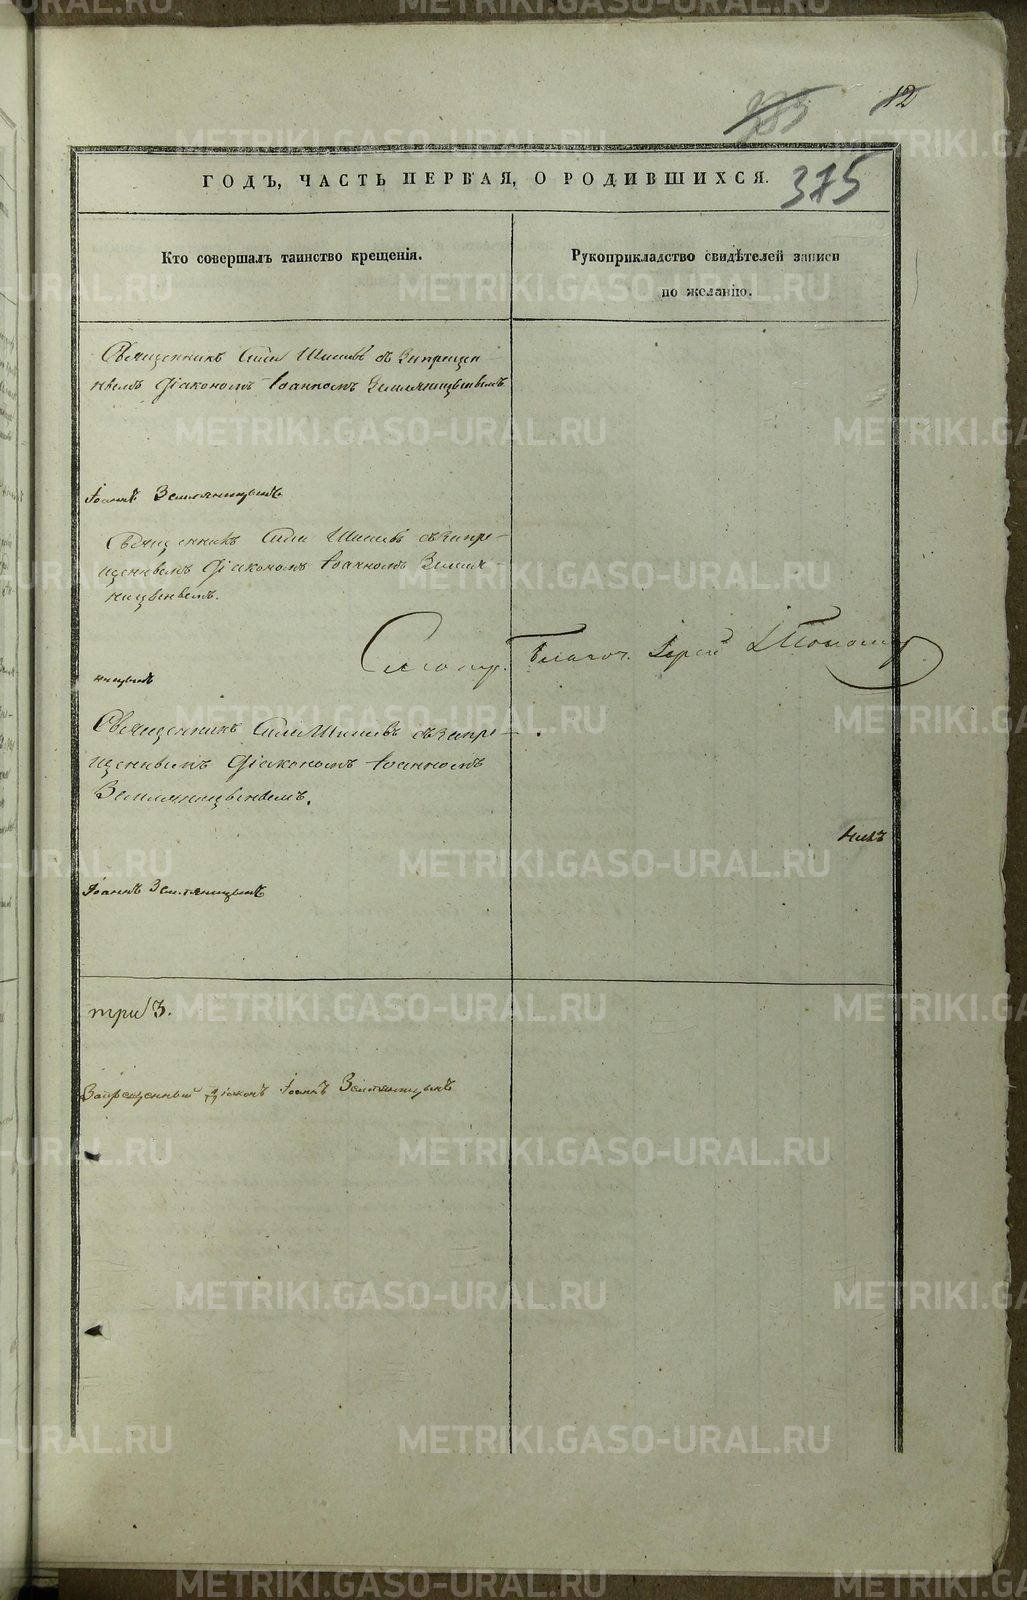 12
375
ГОДЪ, ЧАСТЬ ПЕРВАЯ, О РОДИВШИХСЯ.
Кто совершалъ таинство крещенія.
Рукоприкладство свидѣтелей записи
по желанію.
Священникъ Сила Шишевъ съ запрещен
нымъ Діакономъ Іоанномъ Земляницынымъ
Іоаннъ Земляницынъ
Священникъ Сила Шишевъ съ запре-
щеннымъ Діакономъ Іоанномъ Земля
ницынымъ.
Благоч. Іерей
ницынъ
Священникъ Сила Шишевъ съ запре-
щеннымъ Діакономъ Іоанномъ
Земляницынымъ.
Іоаннъ Земляницынъ
три 3.
Запрещенный Діаконъ Іоаннъ Земляницынъ
METRIKI.GASO-URAL.RU